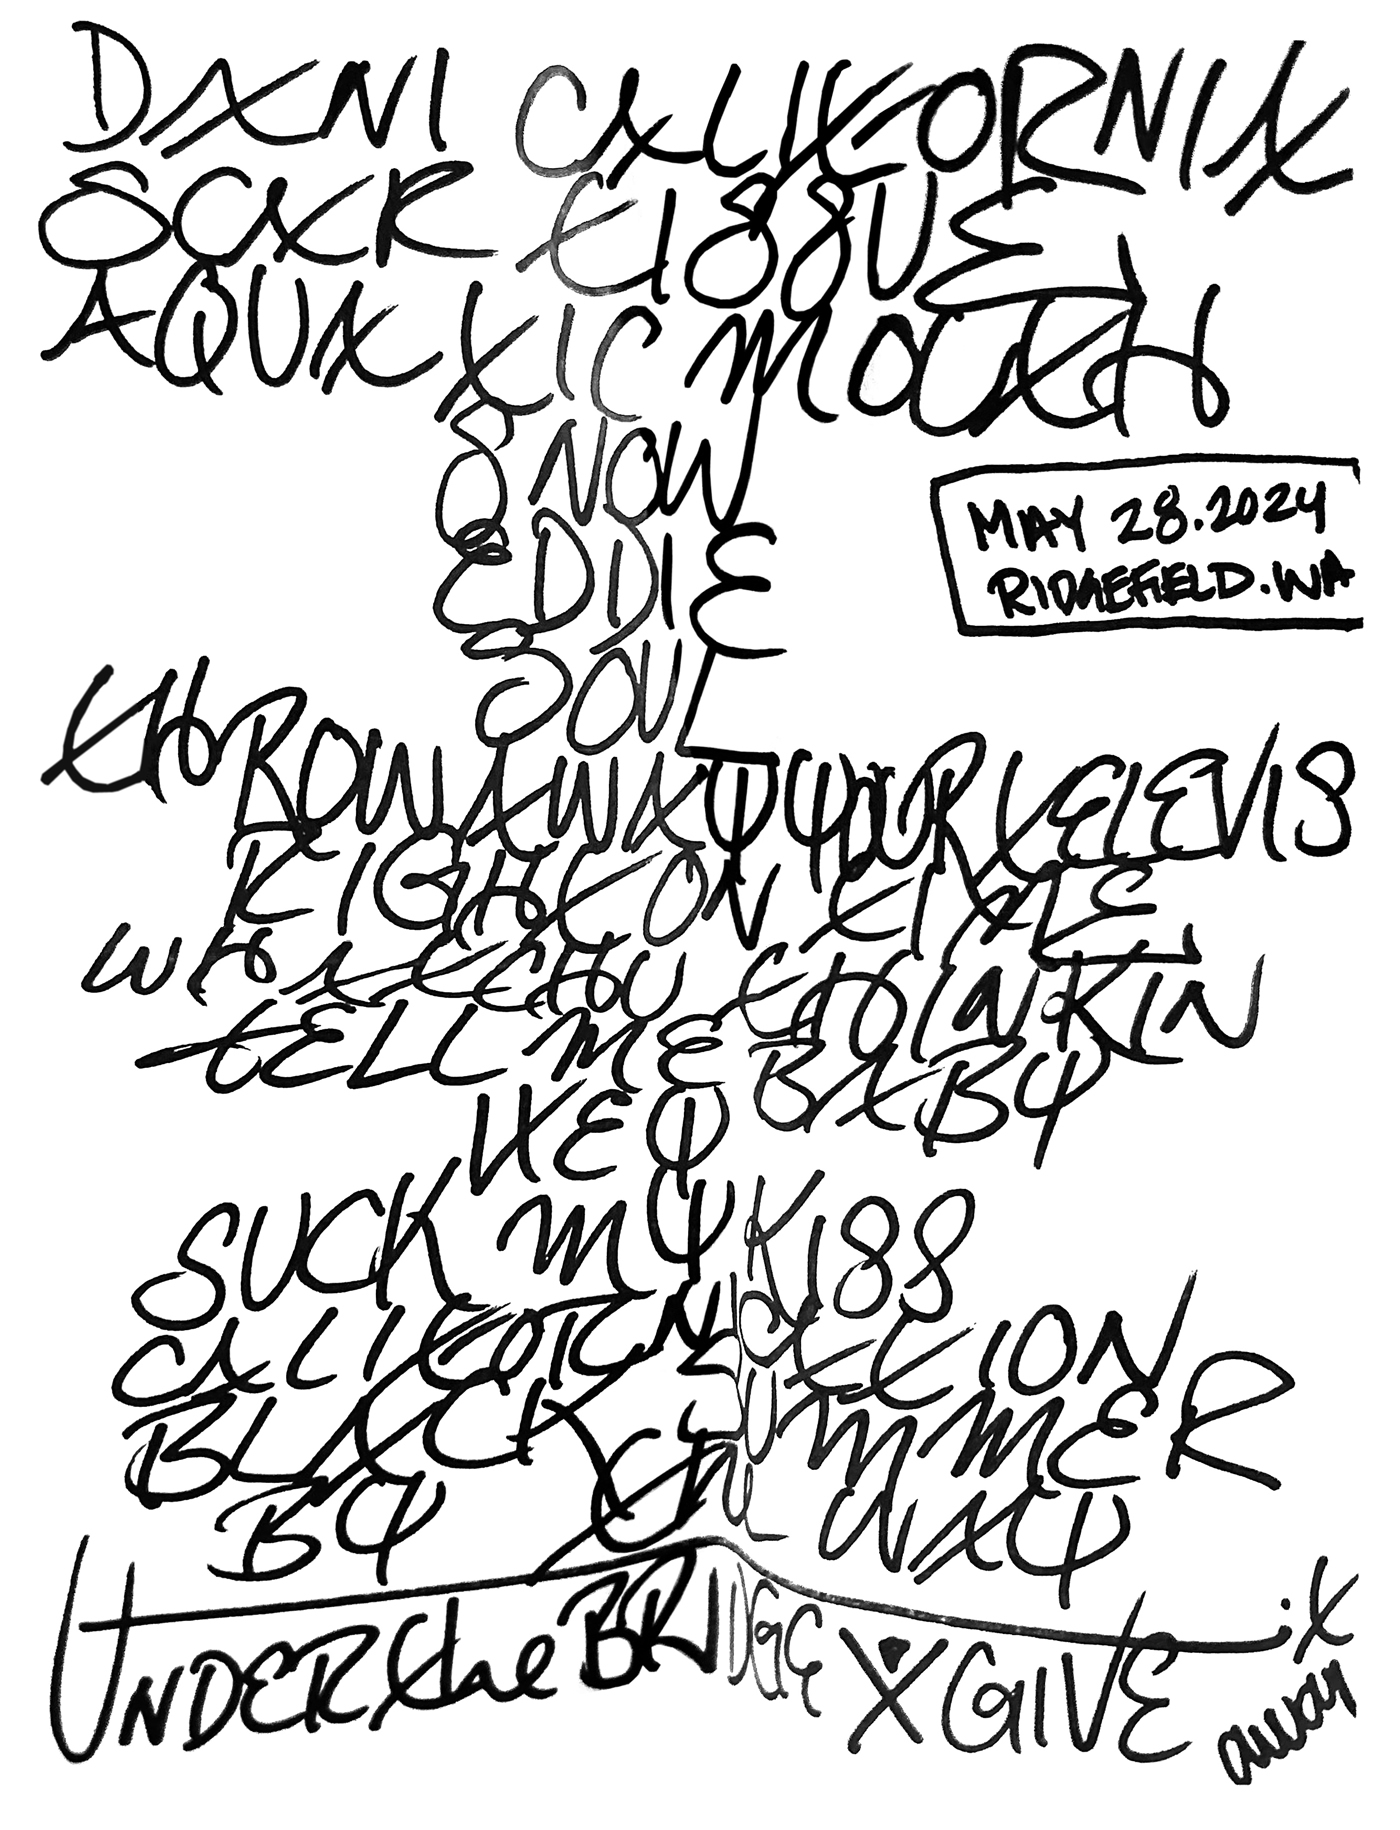 DANI CALIFORNIA
SCAR TISSUE
AQUATIC MOUTH
SNOW
EDDIE
SOUL
THROW AWAY YOUR TELEVIS
RIGHT ON TIME
WHATCHU THINKIN
TELL ME BABY
HEY
SUCK MY KISS
CALIFORNYCATION
BLACK SUMMER
BY the WAY
UNDER the BRIDGE X GIVE it
away
MAY 28.2024
RIDGEFIELD.WA